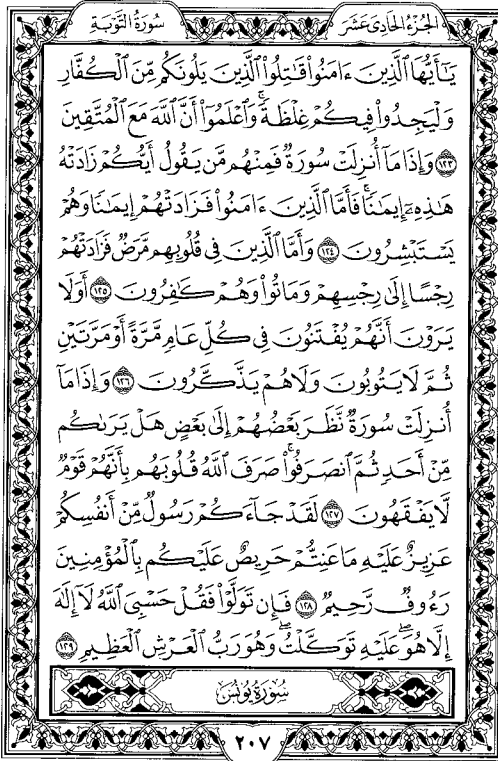 الجزء الحادي عشر
سورة التوبة
يَٰٓأَيُّهَا ٱلَّذِينَ ءَامَنُوا۟ قَٰتِلُوا۟ ٱلَّذِينَ يَلُونَكُم مِّنَ ٱلْكُفَّارِ
وَلْيَجِدُوا۟ فِيكُمْ غِلْظَةً ۚ وَٱعْلَمُوٓا۟ أَنَّ ٱللَّهَ مَعَ ٱلْمُتَّقِينَ
١٢٣ وَإِذَا مَآ أُنزِلَتْ سُورَةٌ فَمِنْهُم مَّن يَقُولُ أَيُّكُمْ زَادَتْهُ
هَٰذِهِۦٓ إِيمَٰنًا ۚ فَأَمَّا ٱلَّذِينَ ءَامَنُوا۟ فَزَادَتْهُمْ إِيمَٰنًا وَهُمْ
يَسْتَبْشِرُونَ ١٢٤ وَأَمَّا ٱلَّذِينَ فِى قُلُوبِهِم مَّرَضٌ فَزَادَتْهُمْ
رِجْسًا إِلَىٰ رِجْسِهِمْ وَمَاتُوا۟ وَهُمْ كَٰفِرُونَ ١٢٥ أَوَلَا
يَرَوْنَ أَنَّهُمْ يُفْتَنُونَ فِى كُلِّ عَامٍ مَّرَّةً أَوْ مَرَّتَيْنِ
ثُمَّ لَا يَتُوبُونَ وَلَا هُمْ يَذَّكَّرُونَ ١٢٦ وَإِذَا مَآ
أُنزِلَتْ سُورَةٌ نَّظَرَ بَعْضُهُمْ إِلَىٰ بَعْضٍ هَلْ يَرَىٰكُم
مِّنْ أَحَدٍ ثُمَّ ٱنصَرَفُوا۟ ۚ صَرَفَ ٱللَّهُ قُلُوبَهُم بِأَنَّهُمْ قَوْمٌ
لَّا يَفْقَهُونَ ١٢٧ لَقَدْ جَآءَكُمْ رَسُولٌ مِّنْ أَنفُسِكُمْ
عَزِيزٌ عَلَيْهِ مَا عَنِتُّمْ حَرِيصٌ عَلَيْكُم بِٱلْمُؤْمِنِينَ
رَءُوفٌ رَّحِيمٌ ١٢٨ فَإِن تَوَلَّوْا۟ فَقُلْ حَسْبِىَ ٱللَّهُ لَآ إِلَٰهَ
إِلَّا هُوَ ۖ عَلَيْهِ تَوَكَّلْتُ ۖ وَهُوَ رَبُّ ٱلْعَرْشِ ٱلْعَظِيمِ ١٢٩
سورة يونس
٢٠٧